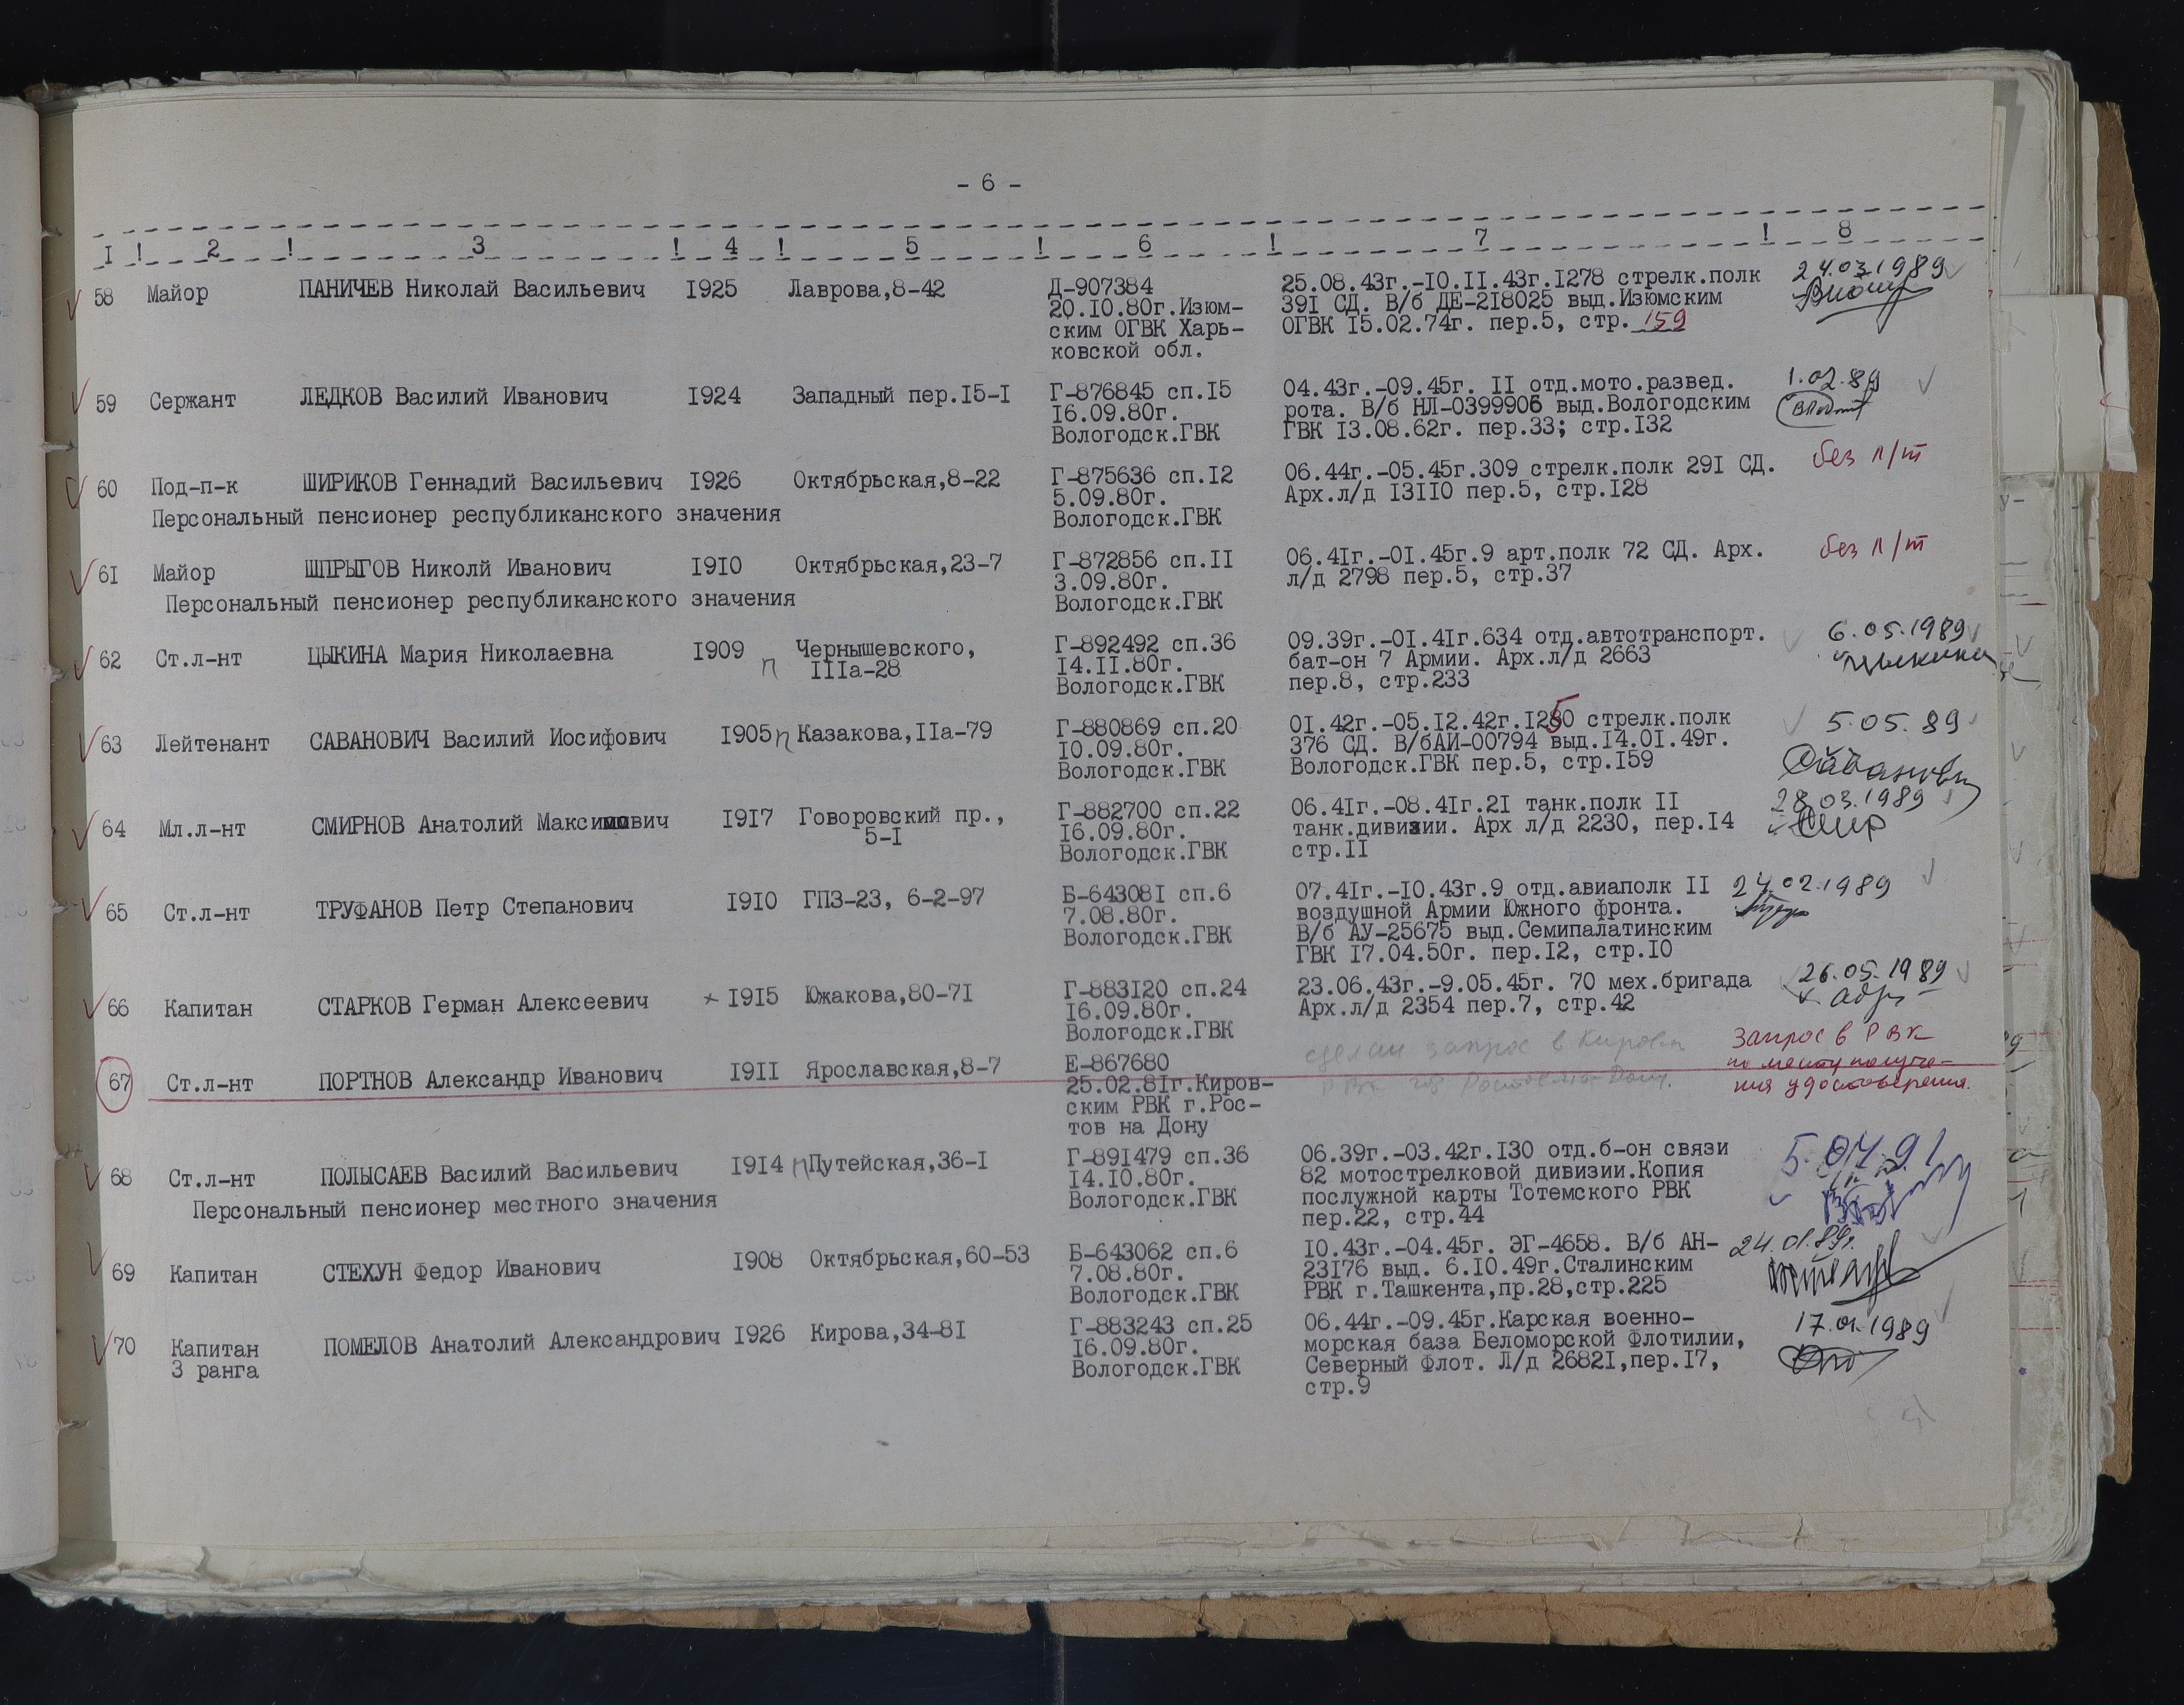 - 6 -
I ! 2 ! 3 ! 4 ! 5 ! 6 ! 7 ! 8
58 Майор ПАНИЧЕВ Николай Васильевич I925 Лаврова,8-42 Д-907384 25.08.43г.-I0.II.43г.I278 стрелк.полк 24.03.1989
20.I0.80г.Изюм- 39I СД. В/б ДЕ-2I8025 выд.Изюмским
ским ОГВК Харь- ОГВК I5.02.74г. пер.5, стр. 159
ковской обл.
59 Сержант ЛЕДКОВ Василий Иванович I924 Западный пер.I5-I Г-876845 сп.I5 04.43г.-09.45г. II отд.мото.развед. 1.02.89
I6.09.80г. рота. В/б НЛ-0399906 выд.Вологодским
Вологодск.ГВК ГВК I3.08.62г. пер.33; стр.I32
60 Под-п-к ШИРИКОВ Геннадий Васильевич I926 Октябрьская,8-22 Г-875636 сп.I2 06.44г.-05.45г.309 стрелк.полк 29I СД. без п/т
5.09.80г. Арх.л/д I3II0 пер.5, стр.I28
Персональный пенсионер республиканского значения Вологодск.ГВК
6I Майор ШПРЫГОВ Николй Иванович I9I0 Октябрьская,23-7 Г-872856 сп.II 06.4Iг.-0I.45г.9 арт.полк 72 СД. Арх. без п/т
3.09.80г. л/д 2798 пер.5, стр.37
Персональный пенсионер республиканского значения Вологодск.ГВК
62 Ст.л-нт ЦЫКИНА Мария Николаевна I909 п Чернышевского, Г-892492 сп.36 09.39г.-0I.4Iг.634 отд.автотранспорт. 6.05.1989
IIIа-28 I4.II.80г. бат-он 7 Армии. Арх.л/д 2663 Цыкина
Вологодск.ГВК пер.8, стр.233
63 Лейтенант САВАНОВИЧ Василий Иосифович I905 п Казакова,IIа-79 Г-880869 сп.20 0I.42г.-05.I2.42г.I250 стрелк.полк 5.05.89
I0.09.80г. 376 СД. В/бАИ-00794 выд.I4.0I.49г.
Вологодск.ГВК Вологодск.ГВК пер.5, стр.I59 Саванович
64 Мл.л-нт СМИРНОВ Анатолий Максимович I9I7 Говоровский пр., Г-882700 сп.22 06.4Iг.-08.4Iг.2I танк.полк II 28.03.1989
5-I I6.09.80г. танк.дивизии. Арх л/д 2230, пер.I4 Смир
Вологодск.ГВК стр.II
65 Ст.л-нт ТРУФАНОВ Петр Степанович I9I0 ГПЗ-23, 6-2-97 Б-64308I сп.6 07.4Iг.-I0.43г.9 отд.авиаполк II 24.02.1989
7.08.80г. воздушной Армии Южного фронта.
Вологодск.ГВК В/б АУ-25675 выд.Семипалатинским
ГВК I7.04.50г. пер.I2, стр.I0
66 Капитан СТАРКОВ Герман Алексеевич I9I5 Южакова,80-7I Г-883I20 сп.24 23.06.43г.-9.05.45г. 70 мех.бригада 26.05.1989
I6.09.80г. Арх.л/д 2354 пер.7, стр.42
Вологодск.ГВК
67 Ст.л-нт ПОРТНОВ Александр Иванович I9II Ярославская,8-7 Е-867680 сделан запрос в Киров Запрос в РВК
25.02.8Iг.Киров- РВК по месту получе-
ским РВК г.Рос- ния удостоверения.
тов на Дону
68 Ст.л-нт ПОЛЫСАЕВ Василий Васильевич I9I4 п Путейская,36-I Г-89I479 сп.36 06.39г.-03.42г.I30 отд.б-он связи 5.04.91
I4.I0.80г. 82 мотострелковой дивизии.Копия
Персональный пенсионер местного значения Вологодск.ГВК послужной карты Тотемского РВК
пер.22, стр.44
69 Капитан СТЕХУН Федор Иванович I908 Октябрьская,60-53 Б-643062 сп.6 I0.43г.-04.45г. ЭГ-4658. В/б АН- 24.01.89г.
7.08.80г. 23I76 выд. 6.I0.49г.Сталинским
Вологодск.ГВК РВК г.Ташкента,пр.28,стр.225
70 Капитан ПОМЕЛОВ Анатолий Александрович I926 Кирова,34-8I Г-883243 сп.25 06.44г.-09.45г.Карская военно- 17.01.1989
3 ранга I6.09.80г. морская база Беломорской Флотилии,
Вологодск.ГВК Северный Флот. Л/д 2682I,пер.I7,
стр.9